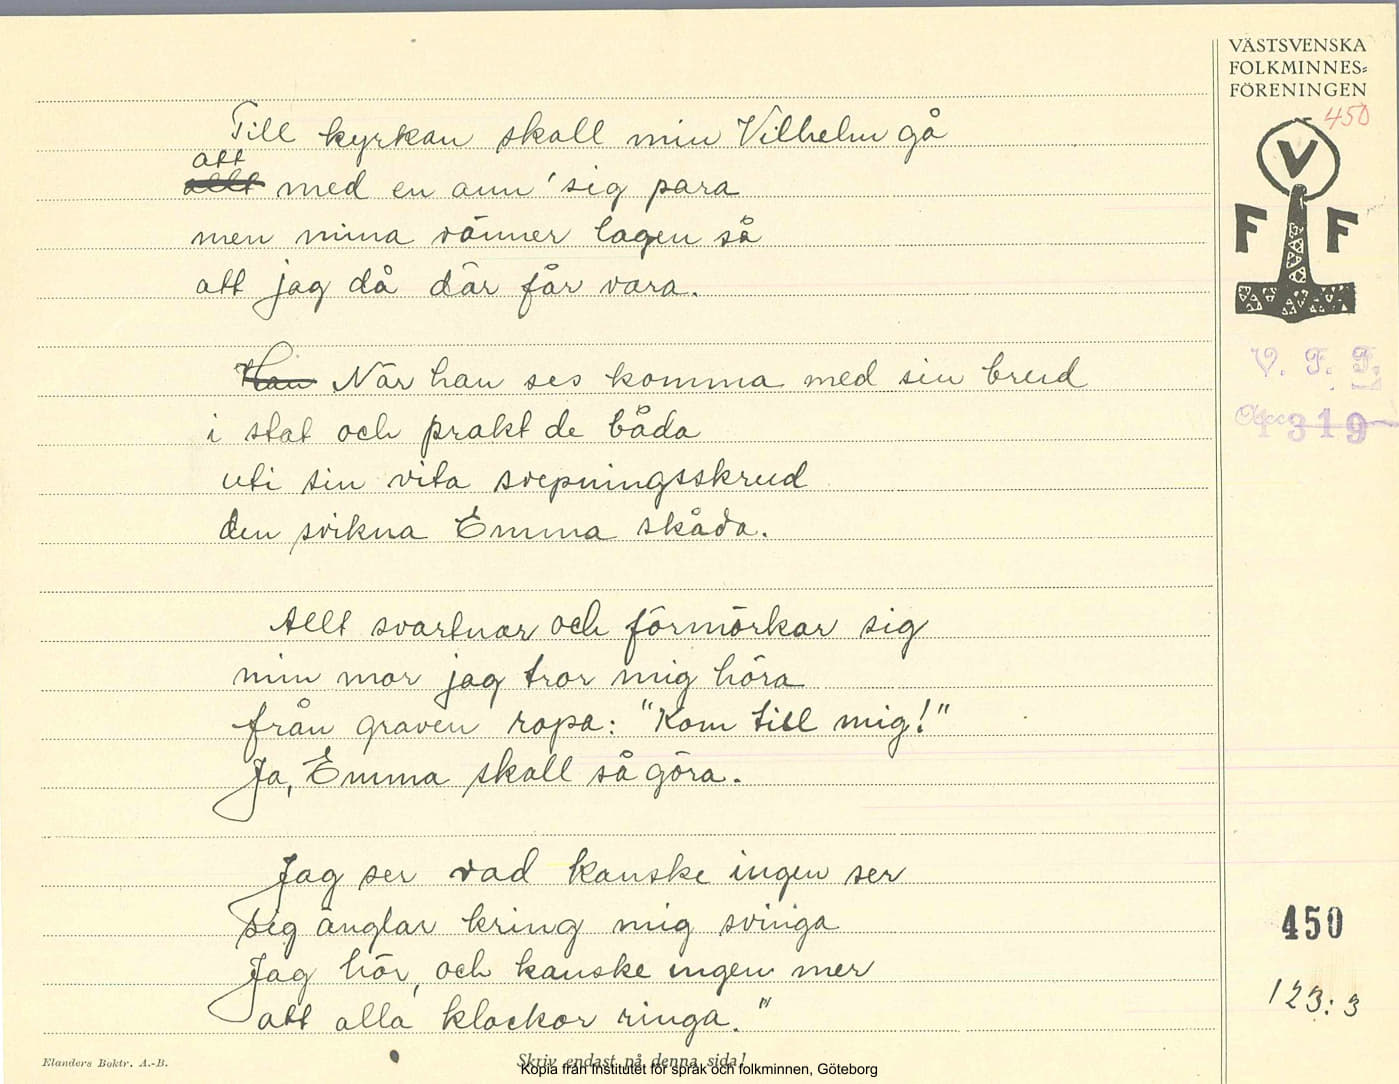 VÄSTSVENSKA
FOLKMINNES-
FÖRENINGEN
450
V
F F
V. F. F.
Acc 1319
Till kyrkan skall min Vilhelm gå
att
allt med en ann' sig para
men mina vänner lagen så
att jag då där får vara.
Han När han ses komma med sin brud
i stat och prakt de båda
uti sin vita svepningsskrud
den svikna Emma skåda.
Allt svartnar och förmörkar sig
min mor jag tror mig höra
från graven ropa: "Kom till mig!"
Ja, Emma skall så göra.
Jag ser vad kanske ingen ser
sig änglar kring mig svinga
Jag hör, och kanske ingen mer
att alla klockor ringa."
450
123:3
Elanders Boktr. A.-B.
Skriv endast på denna sida!
Kopia från Institutet för språk och folkminnen, Göteborg